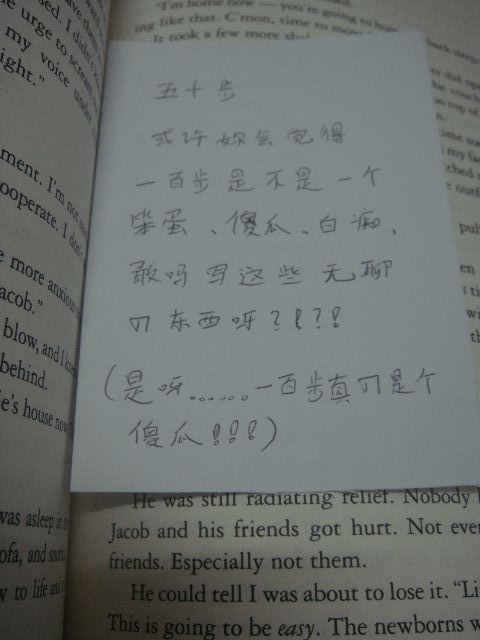 "I'm home now — you're going to
ing like that. C'mon, time to move
It took a few more
urge to scream
my voice under
ight."
ment. I'm not
ooperate. I
more anxious
acob."
blow, and I
behind.
e's house now
was asleep in
ofa, and
w to life and
五十步
或许妳会觉得
一百步是不是一个
柴蛋、傻瓜、白痴,
敢吗写这些无聊
の东西呀?!?!
(是呀......一百步真の是个
傻瓜!!!)
He was still radiating relief. Nobody
Jacob and his friends got hurt. Not
friends. Especially not them.
He could tell I was about to lose it.
This is going to be easy. The newborns